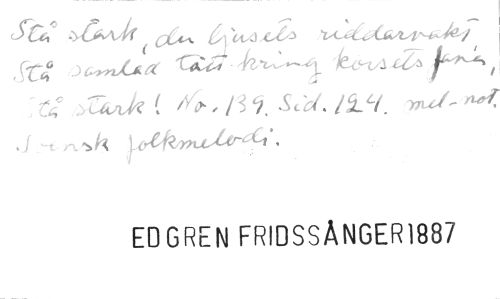 Stå stark, du ljusets riddarvakt,
Stå samlad tätt kring korsets fana,
Stå stark! No. 139. Sid. 124. mel-not.
Svensk folkmelodi.
EDGREN FRIDSSÅNGER 1887